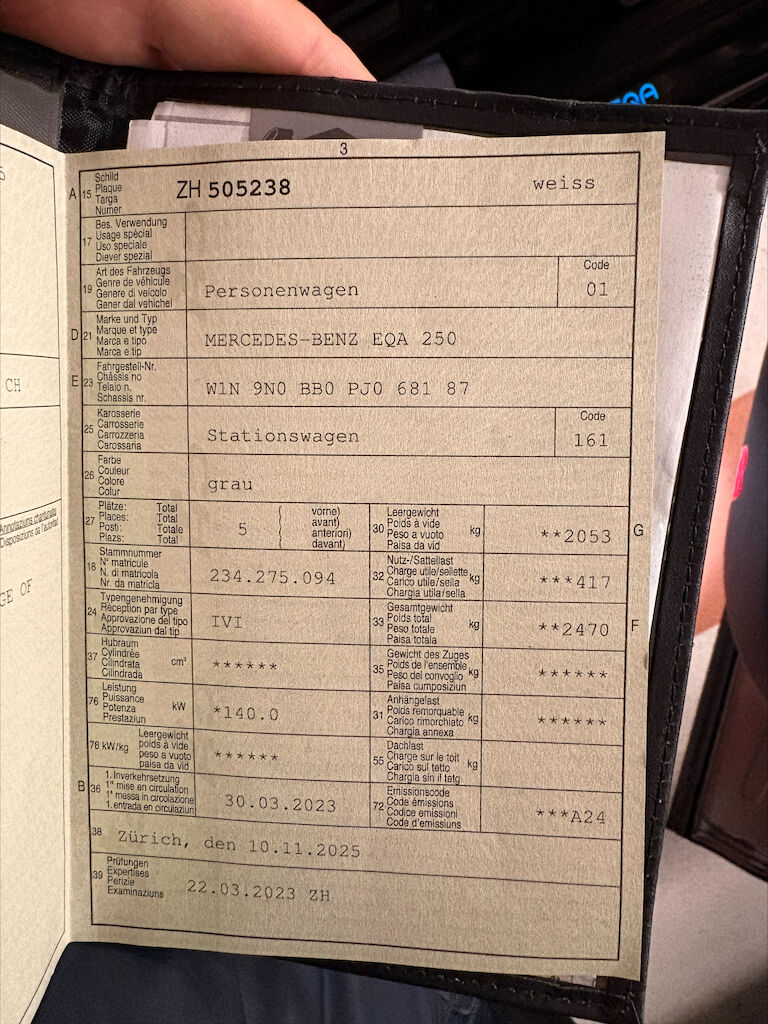 EQA
3
A 15 Schild Plaque Targa Numer ZH 505238 weiss
17 Bes. Verwendung Usage spécial Uso speciale Diever spezial
19 Art des Fahrzeugs Genre de véhicule Genere di veicolo Gener dal vehichel Personenwagen Code 01
D 21 Marke und Typ Marque et type Marca e tipo Marca e tip MERCEDES-BENZ EQA 250
E 23 Fahrgestell-Nr. Châssis no Telaio n. Schassis nr. W1N 9N0 BB0 PJ0 681 87
25 Karosserie Carrosserie Carrozzeria Carossaria Stationswagen Code 161
26 Farbe Couleur Colore Colur grau
27 Plätze: Total Places: Total Posti: Totale Plazs: Total 5 ( vorne) avant) anteriori) davant)
30 Leergewicht Poids à vide Peso a vuoto Paisa da vid kg **2053 G
18 Stammnummer N° matricule N. di matricola Nr. da matricla 234.275.094
32 Nutz-/Sattellast Charge utile/sellette Carico utile/sella Chargia utila/sella kg ***417
24 Typengenehmigung Réception par type Approvazione del tipo Approvaziun dal tip IVI
33 Gesamtgewicht Poids total Peso totale Paisa totala kg **2470 F
37 Hubraum Cylindrée Cilindrata Cilindrada cm³ ******
35 Gewicht des Zuges Poids de l'ensemble Peso del convoglio Paisa cumposiziun kg ******
76 Leistung Puissance Potenza Prestaziun kW *140.0
31 Anhängelast Poids remorquable Carico rimorchiato Chargia annexa kg ******
78 kW/kg Leergewicht poids à vide peso a vuoto paisa da vid ******
55 Dachlast Charge sur le toit Carico sul tetto Chargia sin il tetg kg
B 36 1. Inverkehrsetzung 1re mise en circulation 1a messa in circolazione 1. entrada en circulaziun 30.03.2023
72 Emissionscode Code émissions Codice emissioni Code d'emissiuns ***A24
38 Zürich, den 10.11.2025
39 Prüfungen Expertises Perizie Examinaziuns 22.03.2023 ZH
CH
Annotaziuns chantunalas
Disposiziuns da l'autoritad
GE OF